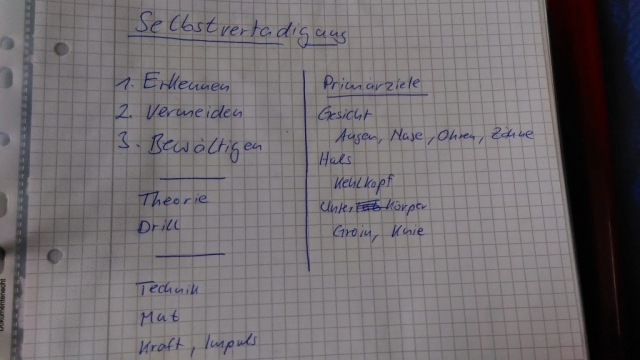 Selbstvertadigung
1. Erkennen
2. Vermeiden
3. Bewältigen
Theorie
Drill
Technik
Mut
Kraft, Impuls
Primärziele
Gesicht
Augen, Nase, Ohren, Zähne
Hals
Kehlkopf
Unter Körper
Groin, Knie